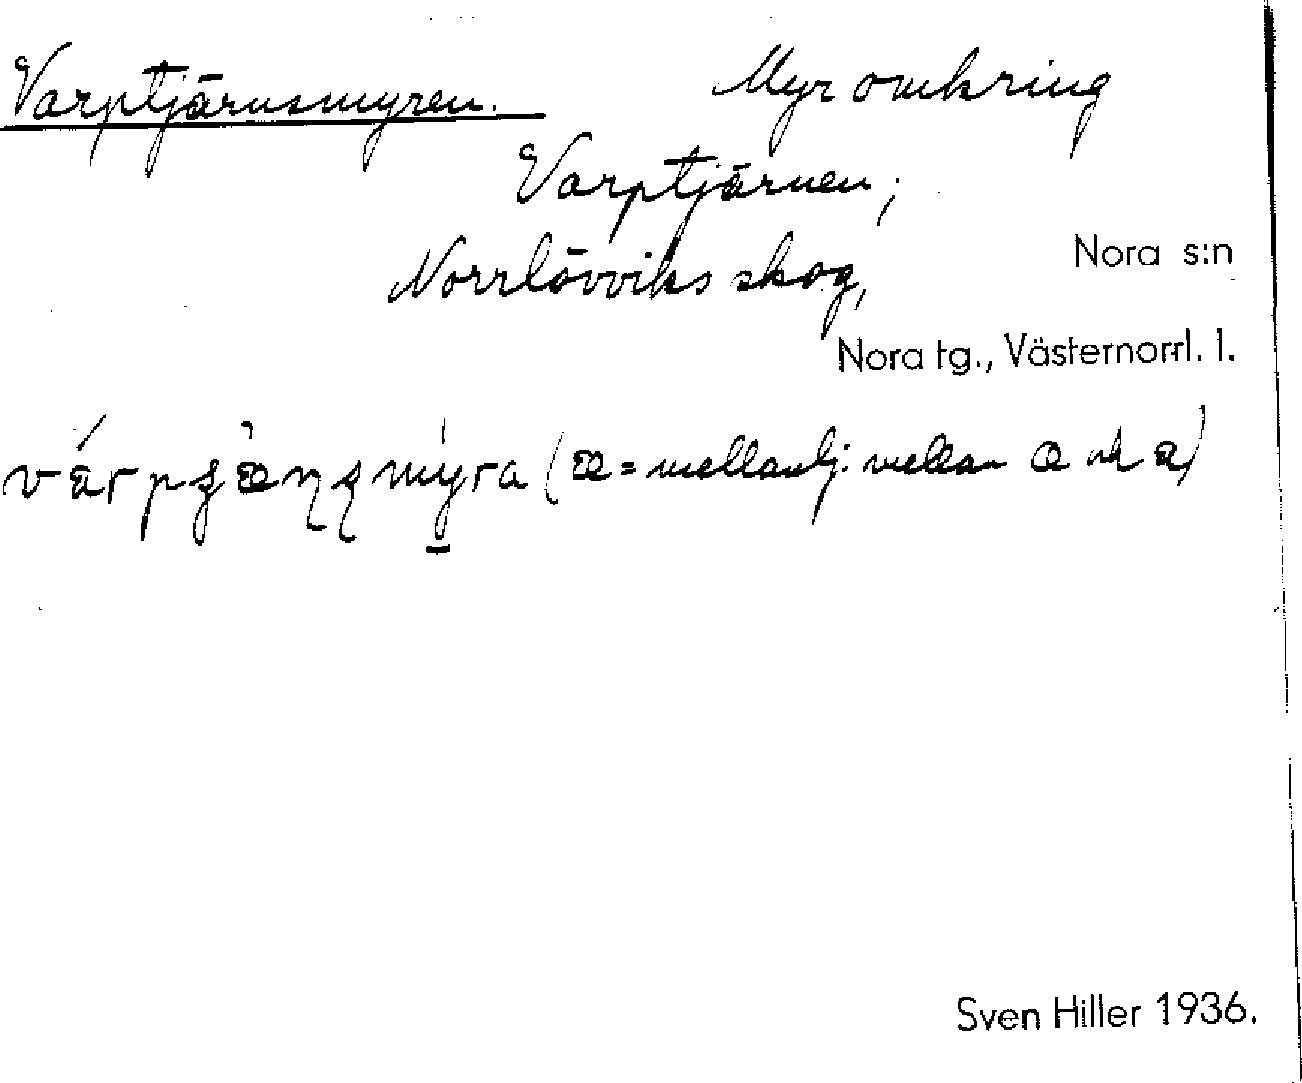 Varptjärnsmyren. Myr omkring
Varptjärnen;
Norrlövviks skog,
Nora s:n
Nora tg., Västernorrl. l.
(æ = mellanlj. mellan a och a)
Sven Hiller 1936.